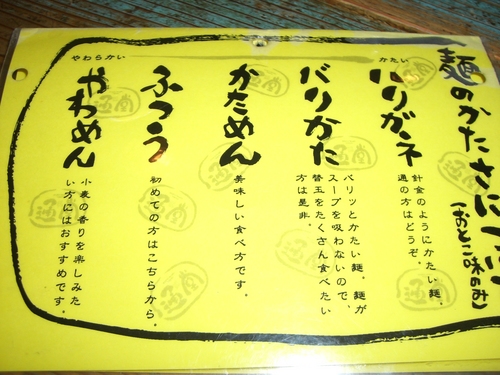 麺のかたさについ
(おとこ味のみ)
かたい
やわらかい
ハリガネ
針金のようにかたい麺。
通の方はどうぞ。
バリかた
バリッとかたい麺。麺が
スープを吸わないので、
替玉をたくさん食べたい
方は是非。
かためん
美味しい食べ方です。
ふつう
初めての方はこちらから。
やわめん
小麦の香りを楽しみた
い方にはおすすめです。